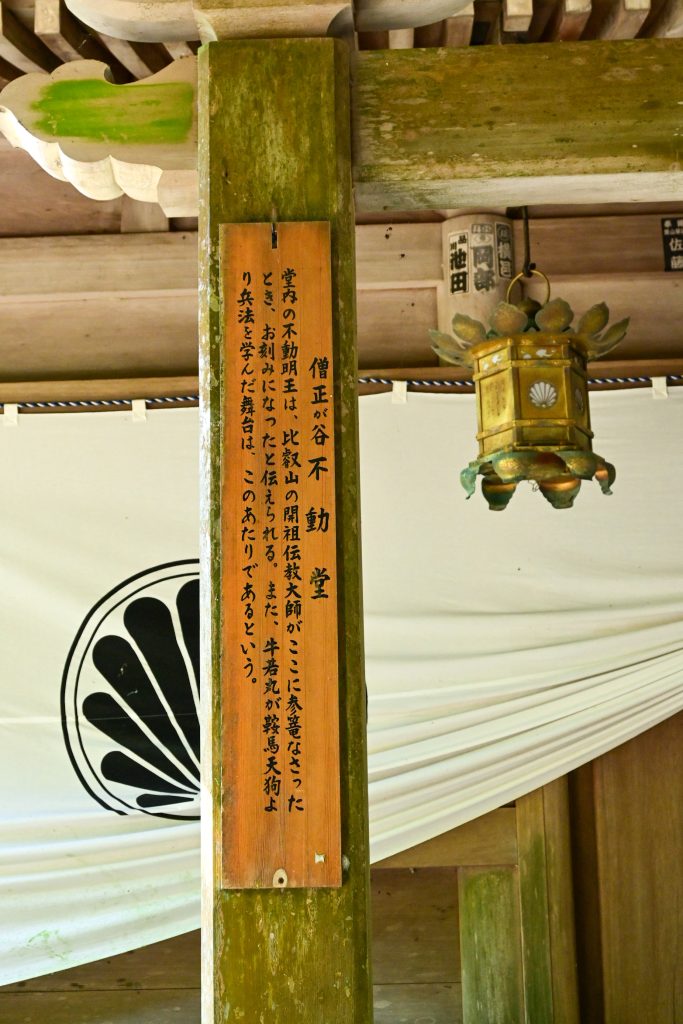 僧正が谷不動堂
堂内の不動明王は、比叡山の開祖伝教大師がここに参篭なさった
とき、お刻みになったと伝えられる。また、牛若丸が鞍馬天狗よ
り兵法を学んだ舞台は、このあたりであるという。
池田
佐藤